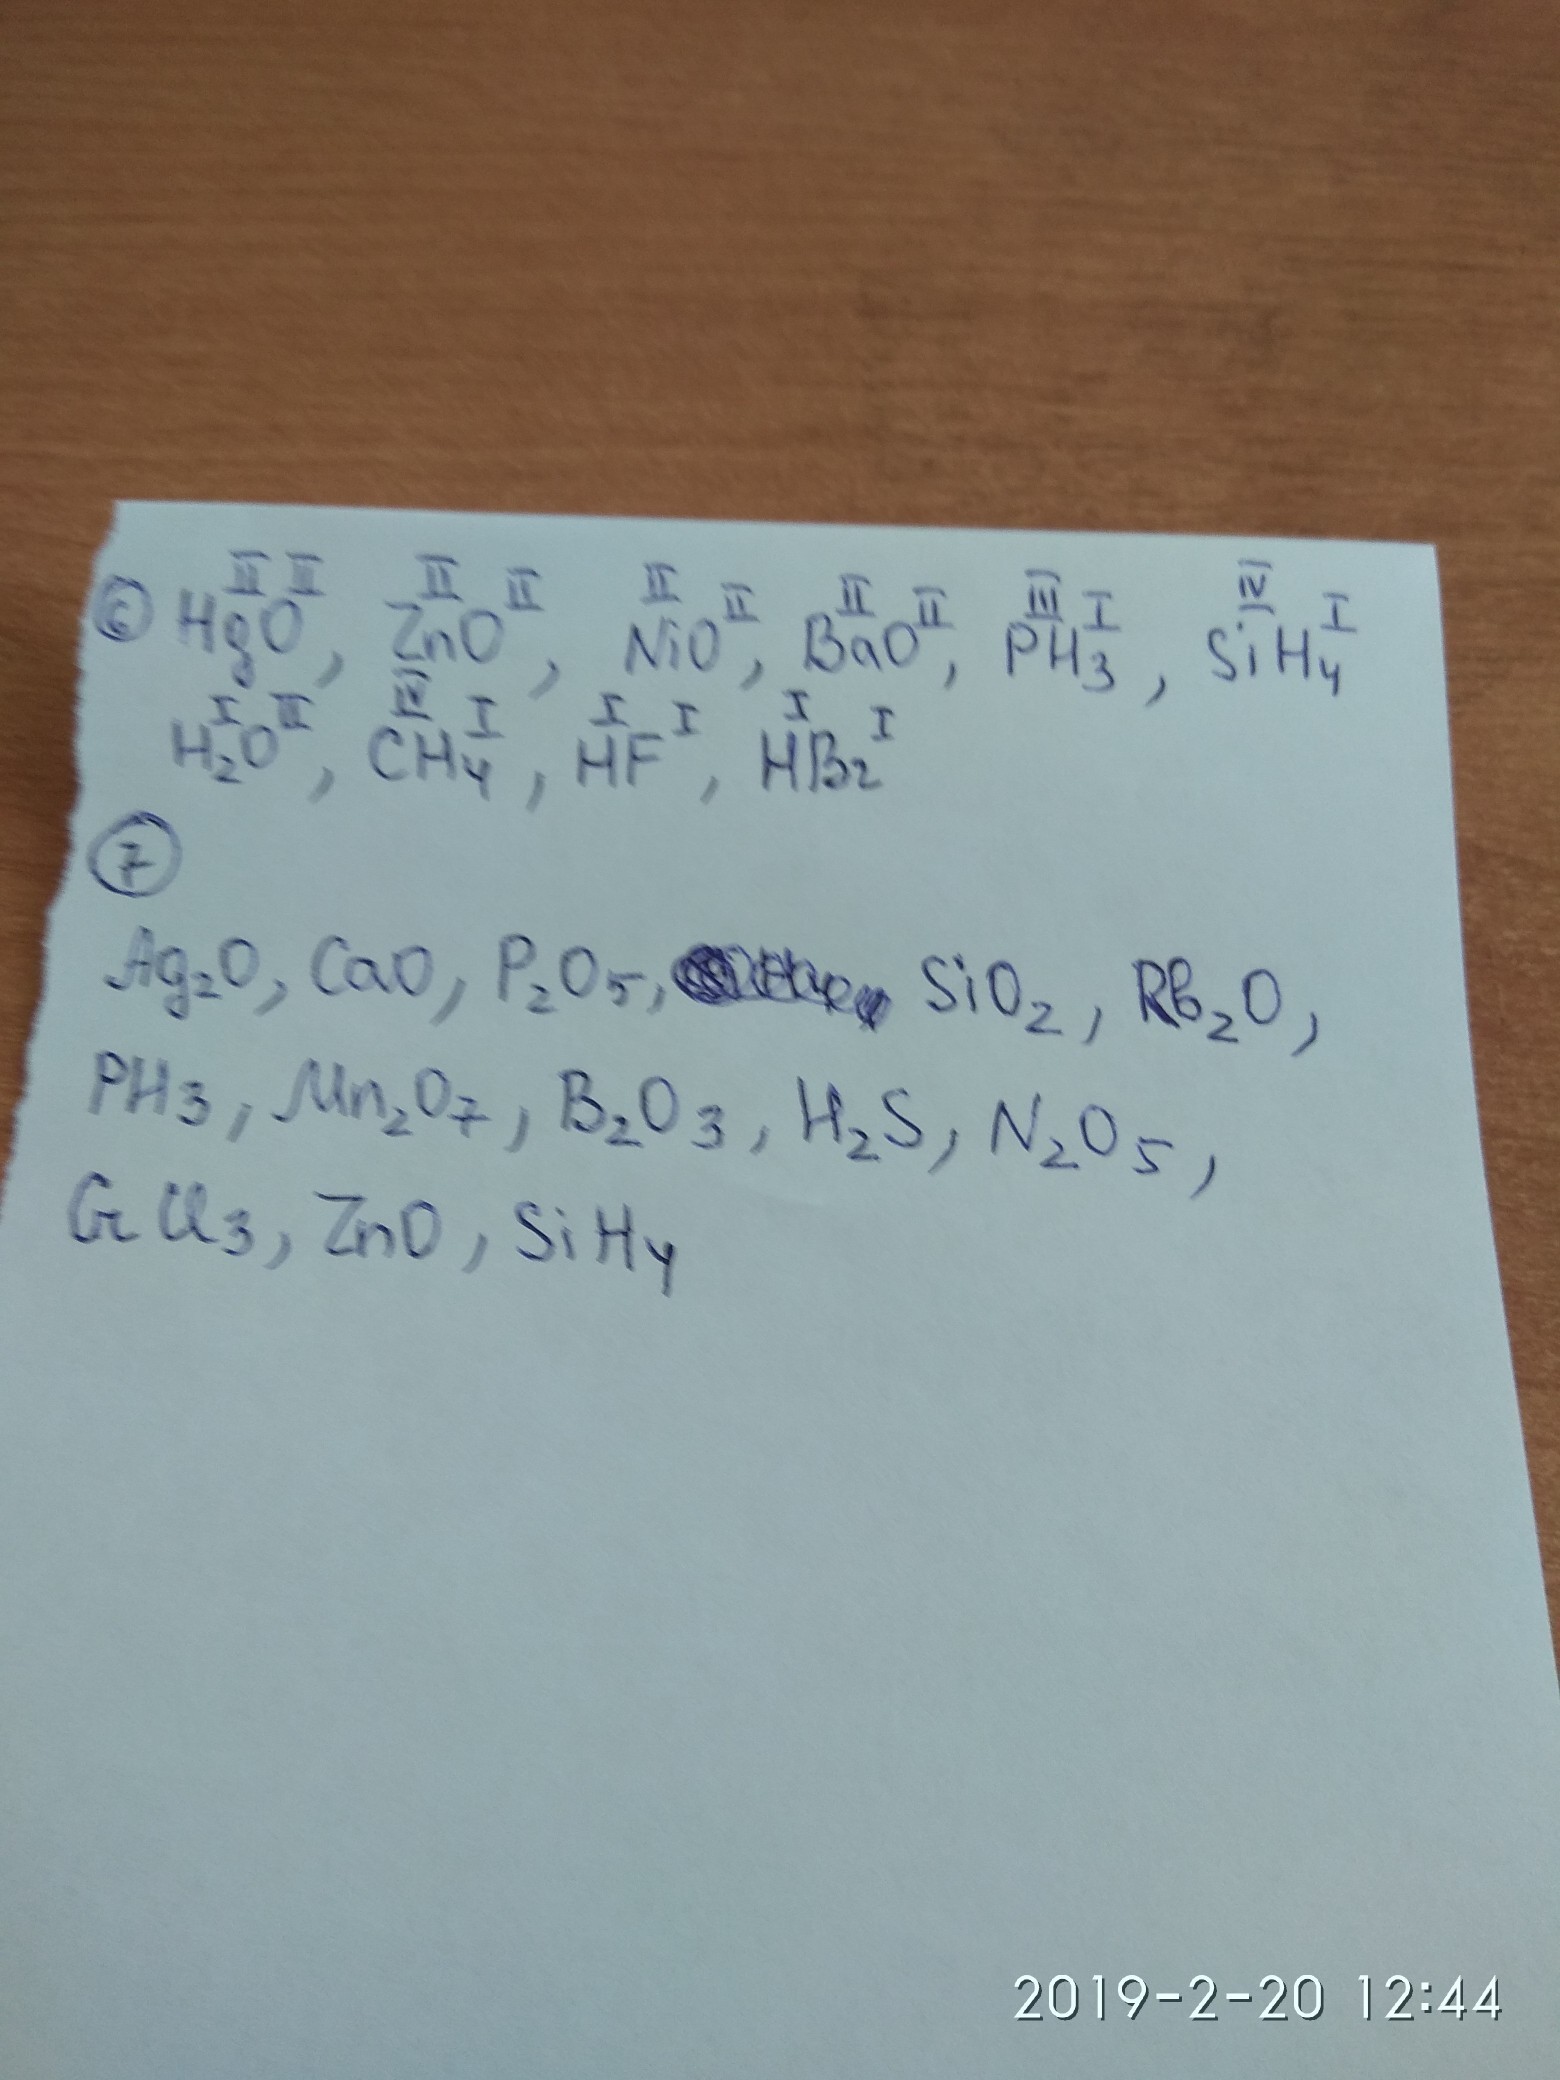 ⑥ Hg^II O^II, Zn^II O^II, Ni^II O^II, Ba^II O^II, P^III H^I₃, Si^IV H^I₄
H^I₂O^II, C^IV H^I₄, H^I F^I, H^I Br^I
⑦
Ag₂O, CaO, P₂O₅, SiO₂, Rb₂O,
PH₃, Mn₂O₇, B₂O₃, H₂S, N₂O₅,
CrCl₃, ZnO, SiH₄
2019-2-20 12:44